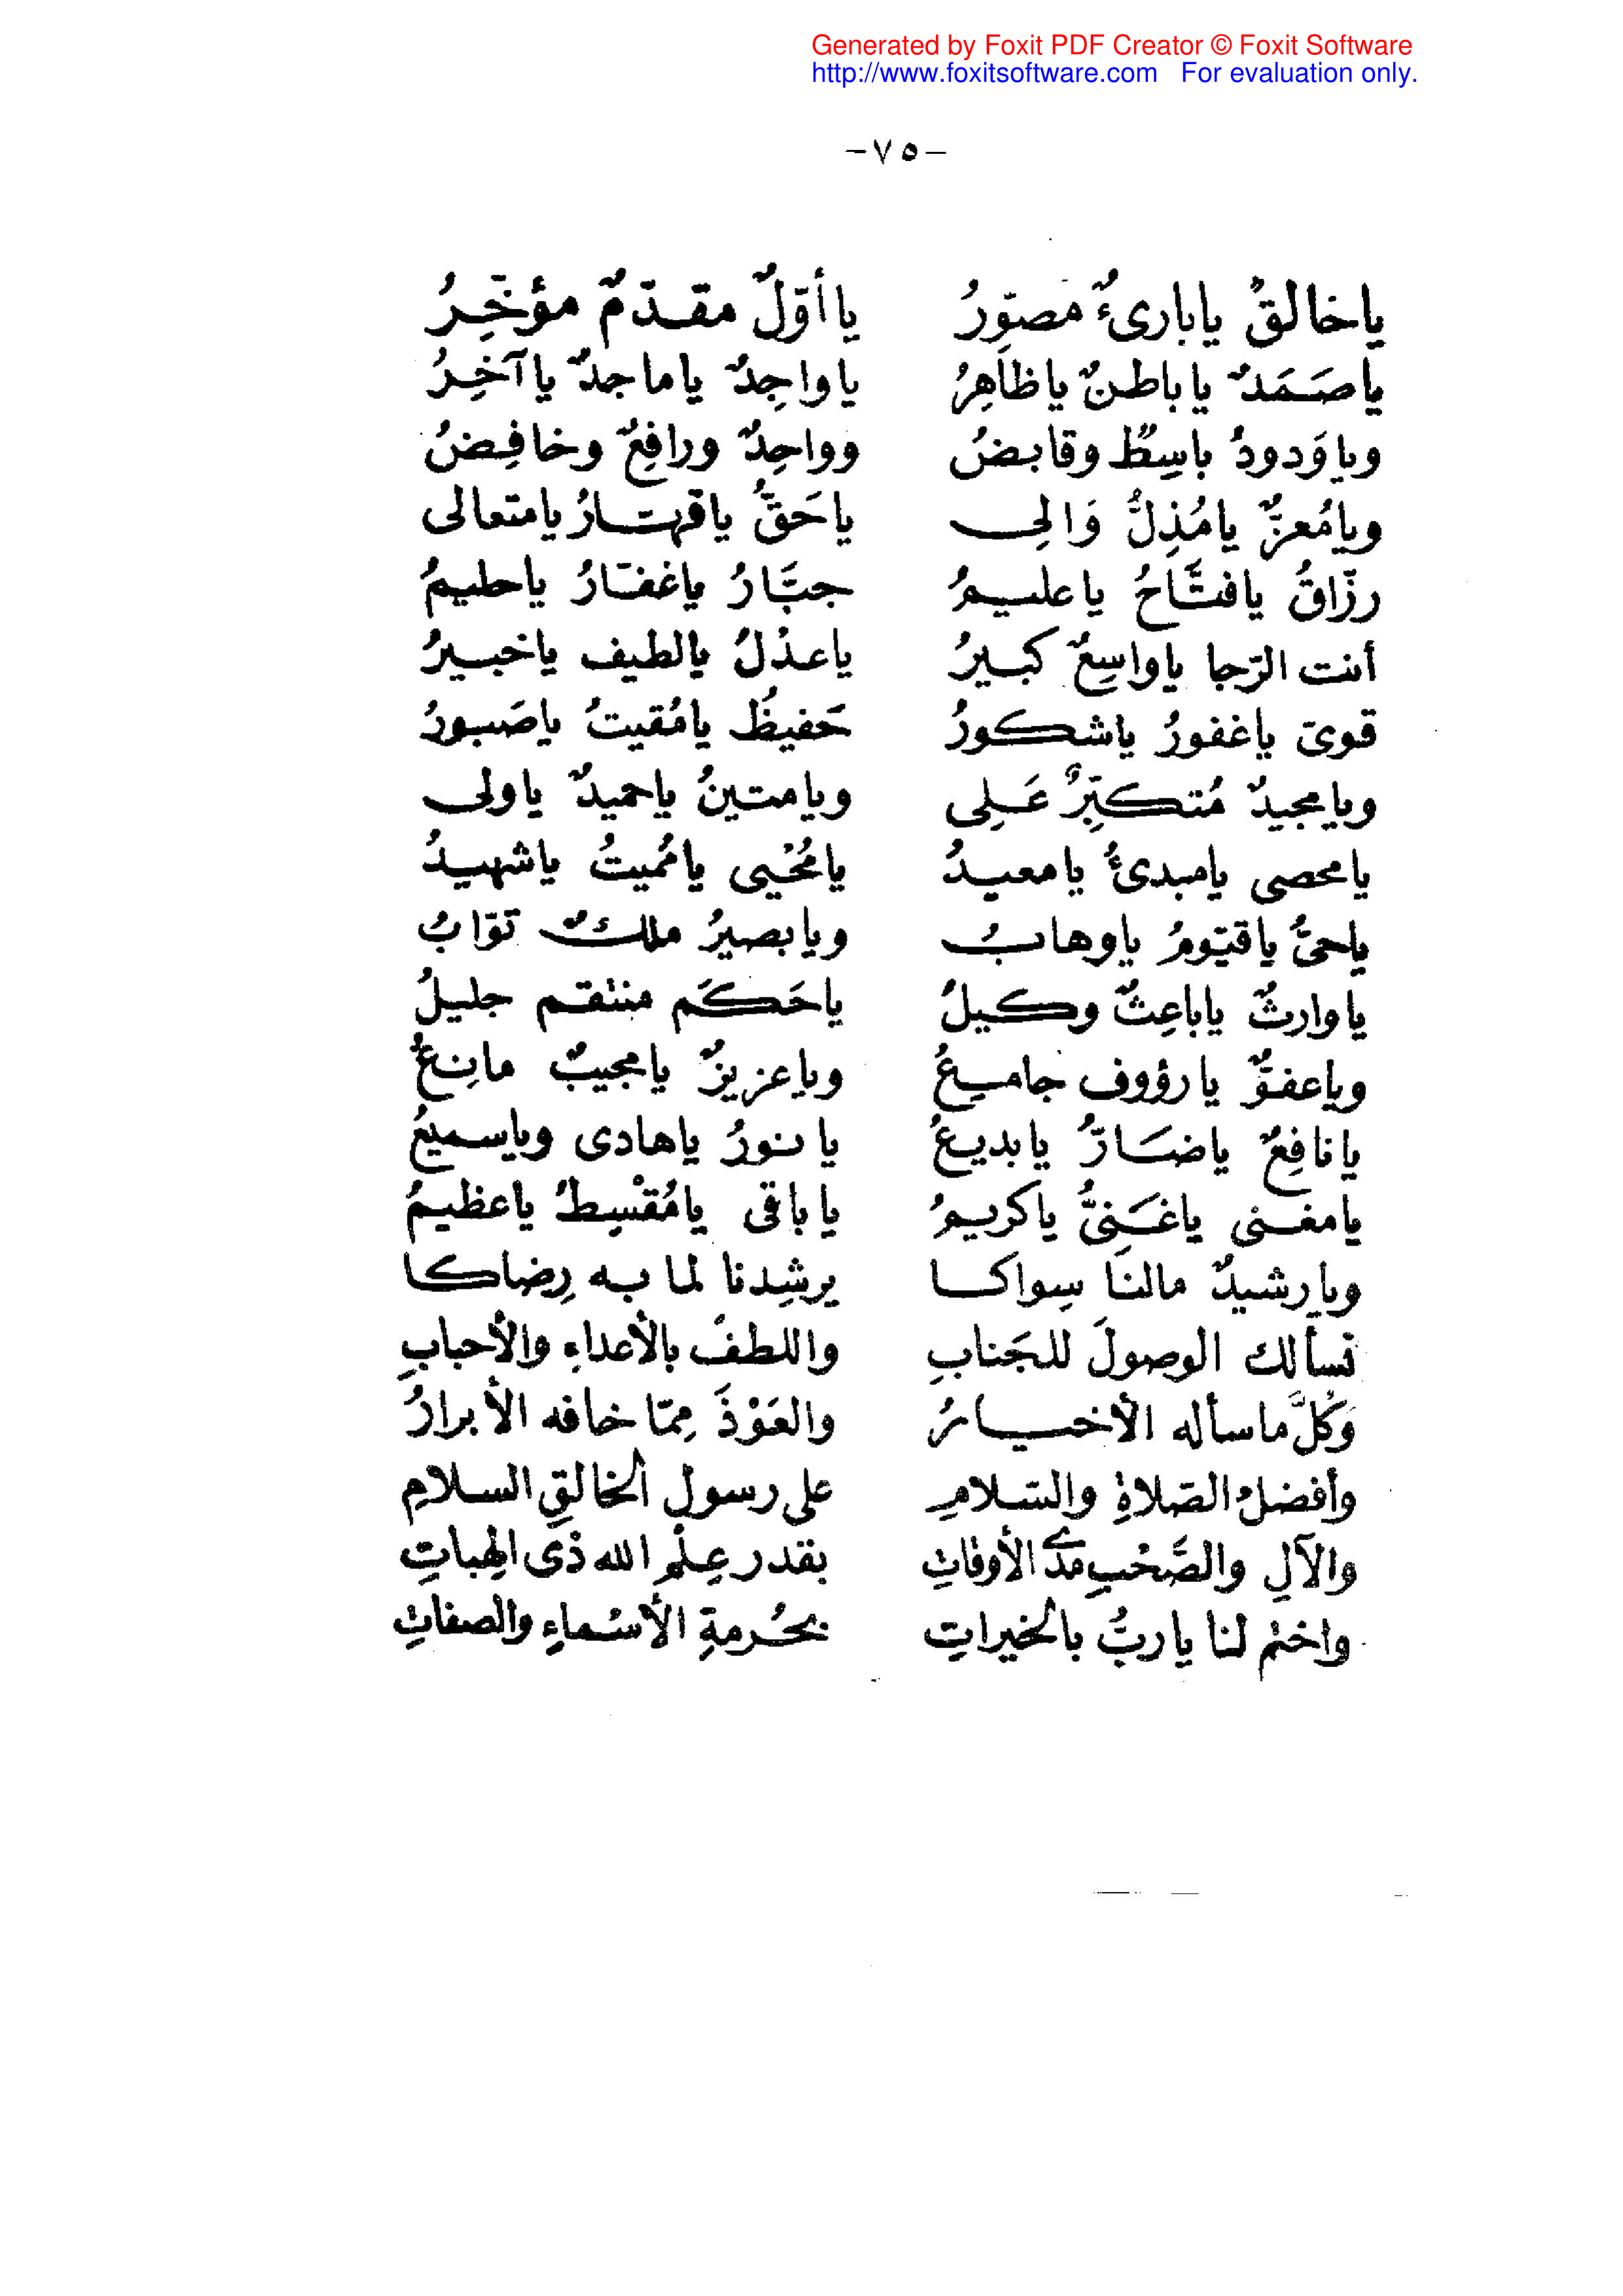 Generated by Foxit PDF Creator © Foxit Software
http://www.foxitsoftware.com For evaluation only.
-٧٥-
ياخالقُ ياباریءٌ مصوِّرُ ياأوّلٌ مقدّمٌ مؤخِّرُ
ياصَمَدٌ ياباطنٌ ياظاهِرُ ياواجِدٌ ياماجدٌ ياآخِرُ
وياوَدودُ باسِطٌ وقابضُ وواحِدٌ ورافِعٌ وخافِضُ
ويامُعزٌّ يامُذِلُّ وَالِى ياحَقُّ ياقهّارُ يامتعالى
رزّاقُ يافتَّاحُ ياعليمُ جبَّارُ ياغفّارُ ياحليمُ
أنت الرّجا ياواسِعٌ كبيرُ ياعدْلُ يالطيف ياخبيرُ
قوىّ ياغفورُ ياشكورُ حَفيظُ يامُقيتُ ياصَبورُ
ويامجيدٌ مُتكبِّرٌ عَلِى ويامتينُ ياحميدٌ ياولى
يامحصى يامبدئُ يامعيدُ يامُحْيى يامُميتُ ياشهيدُ
ياحىُّ ياقيّومُ ياوهابُ ويابصيرُ ملكٌ توّابُ
ياوارثٌ ياباعِثٌ وكيلُ ياحَكَم منتقم جليلُ
وياعفوٌّ يارؤوف جامعُ وياعزيزٌ يامجيبٌ مانِعُ
يانافِعٌ ياضَارُّ يابديعُ يانورُ ياهادى وياسميعُ
يامغنى ياغَنِىُّ ياكريمُ ياباقى يامُقْسِطُ ياعظيمُ
ويارشيدٌ مالنَا سِواكا يرشِدنا لما به رِضاكا
نسألك الوصولَ للجَنابِ واللطفَ بالأعداءِ والأحبابِ
وَكلَّ ماسأله الأخيارُ والعَوْذَ مِمّا خافه الأبرارُ
وأفضلُ الصّلاةِ والسّلامِ على رسولِ الخالقِ السلامِ
والآلِ والصَّحْبِ مَدَى الأوقاتِ بقدر عِلْمِ الله ذى الهِباتِ
واختم لنا ياربُّ بالخيراتِ بحُرمةِ الأسْماءِ والصفاتِ